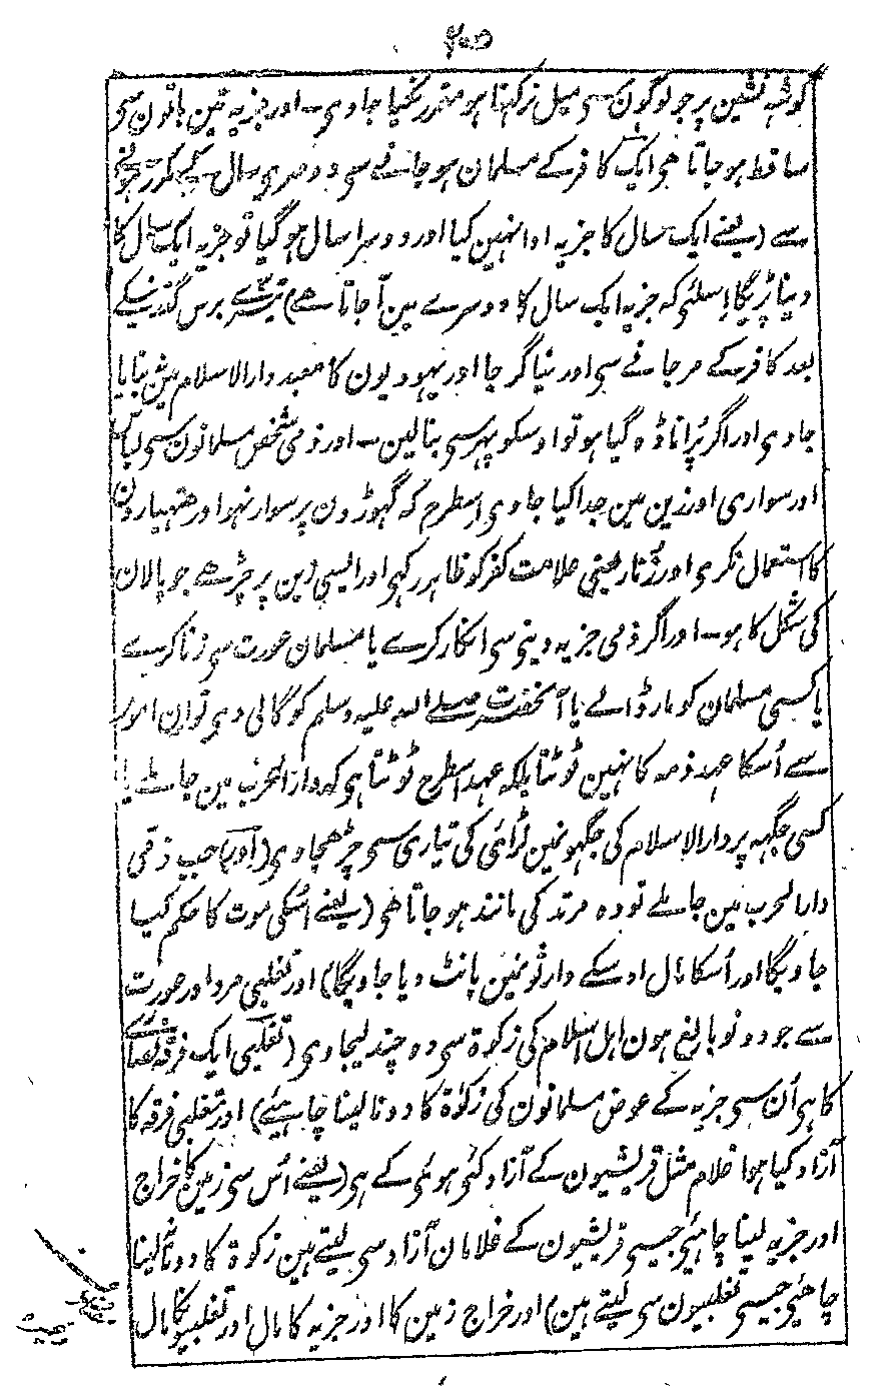 ۲۰۵
گوشہ نشین پر جو لوگون سی میل نرکہتا ہو مقرر نکیا جاوی ۔ اور جزیہ تین باتون سی
ساقط ہو جاتا ہی ایک کافر کے مسلمان ہو جانے سی دوسری سال کے مکرر ہونے
سے (یعنے ایک سال کا جزیہ ادا نہین کیا اور دوسرا سال ہو گیا تو جزیہ ایک سال کا
دینا پڑیگا اسلئی کہ جزیہ ایک سال کا دوسرے مین آ جاتا ہے) تیسرے برس گذرنیکے
بعد کافر کے مر جانے سی اور نیا گرجا اور یہودیون کا معبد دار الاسلام مین نہ بنایا
جاوی اور اگر پُرانا ڈہ گیا ہو تو اوسکو پہر سی بنا لین ۔ اور ذمی شخص مسلمانون سی لباس
اور سواری اور زین مین جدا کیا جاوی اسطرح کہ گہوڑون پر سوار نہو اور ہتہیارون
کا استعمال نکری اور زُنار یعنی علامت کفر کو ظاہر رکہی اور ایسی زین پر چڑھے جو پالان
کی شکل کا ہو ۔ اور اگر ذمی جزیہ دینی سی انکار کرے یا مسلمان عورت سی زنا کرے
یا کسی مسلمان کو مار ڈالے یا آنحضرت صلے اللہ علیہ وسلم کو گالی دی تو ان امور
سے اُسکا عہد ذمہ کا نہین ٹوٹتا بلکہ عہد اسطرح ٹوٹتا ہی کہ دار الحرب مین جا ملے یا
کسی جگہہ پر دار الاسلام کی جگہونمین لڑائی کی تیاری سی چڑھجاوی (اور) جب ذمی
دار الحرب مین جا ملے تو وہ مرتد کی مانند ہو جاتا ہی (یعنے اُسکی موت کا حکم کیا
جاویگا اور اُسکا مال اوسکے وارثونمین بانٹ دیا جاویگا) اور تغلبی مرد اور عورت
سے جو دونو بالغ ہون اہل اسلام کی زکوۃ سی دو چند لیجاوی (تغلبی ایک فرقہ نصاریٰ
کا ہی اُن سی جزیہ کے عوض مسلمانون کی زکوٰۃ کا دونا لینا چاہیئے) اور تغلبی فرقہ کا
آزاد کیا ہوا غلام مثل قریشیون کے آزاد کئی ہوئی کے ہی (یعنے اُس سی زمین کا خراج
اور جزیہ لینا چاہئی جیسی قریشیون کے غلامان آزاد سی لیتے ہین زکوۃ کا دونا نہ لینا
چاہئی جیسی تغلبیون سی لیتے ہین) اور خراج زمین کا اور جزیہ کا مال اور تغلبیونکا مال